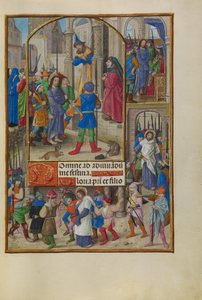 Domine ad adiuuādū
me festina.
Gloria pri et filio